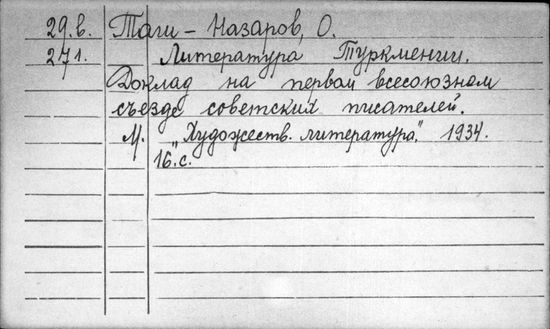 29.в. Таги-Назаров, О.
271. Литература Туркмении.
Доклад на первом всесоюзном
съезде советских писателей.
М. "Художеств. литература." 1934.
16.с.